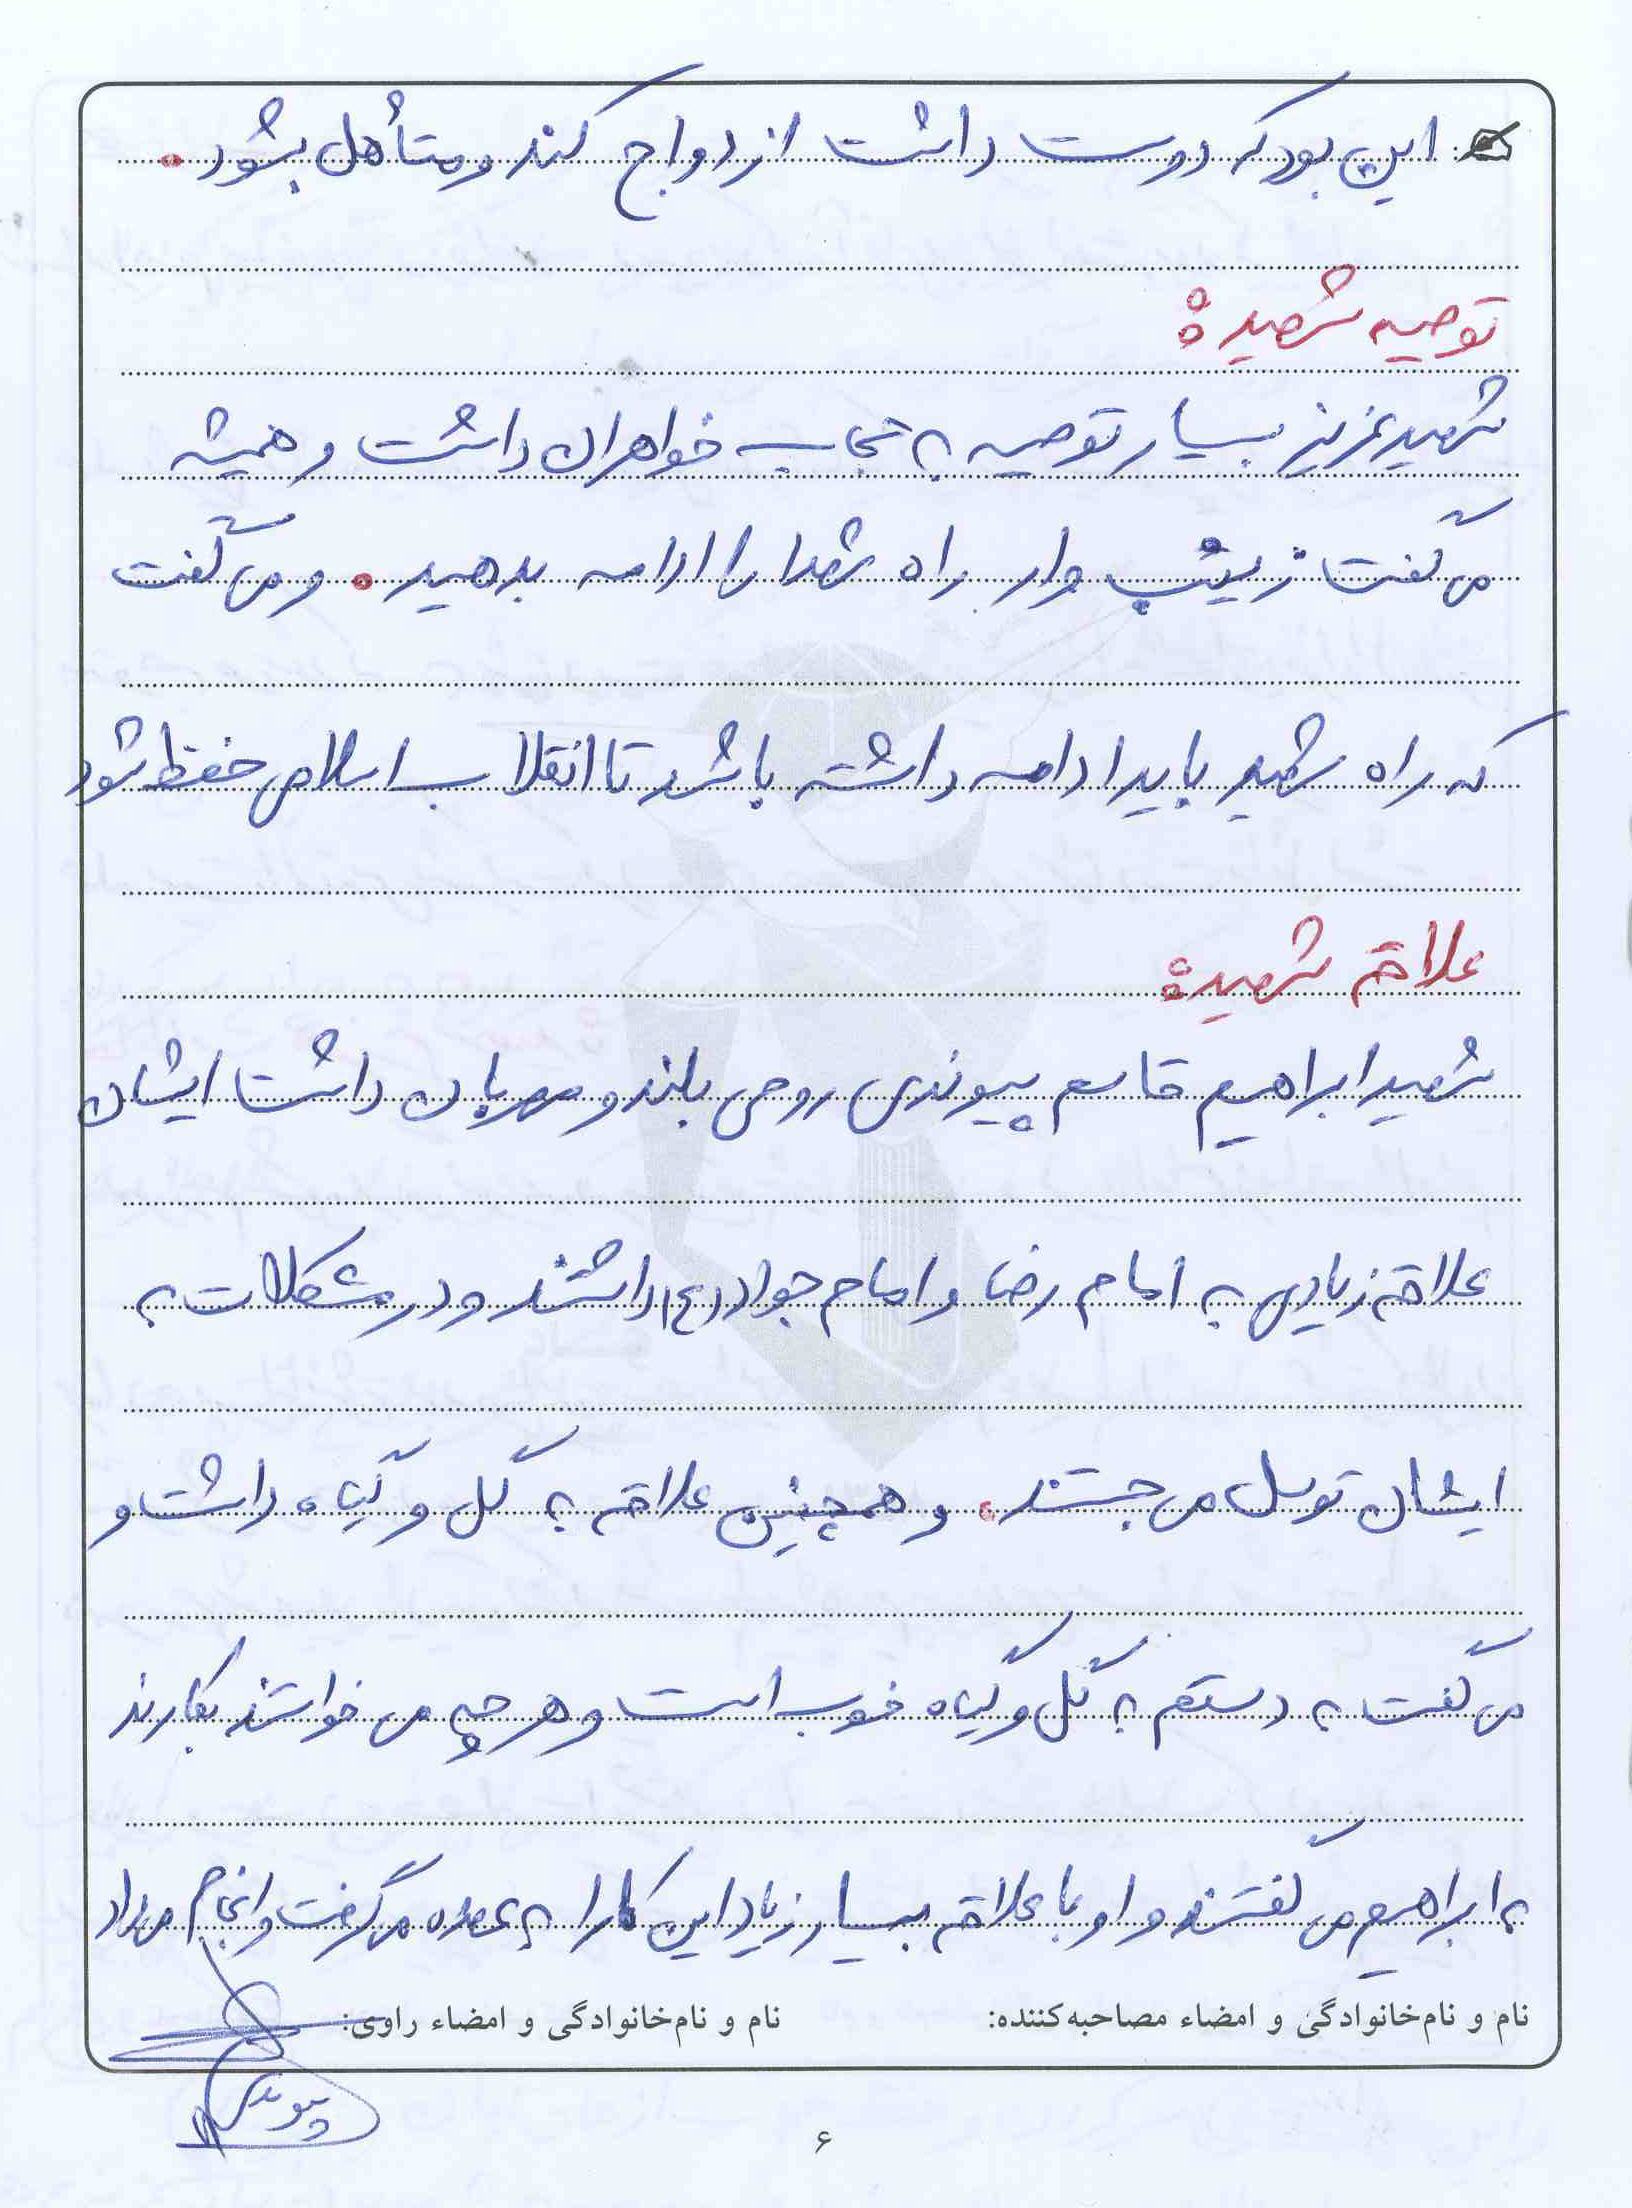 این بود که دوست داشت ازدواج کند و متأهل بشود.
توصیه شهید:
شهید عزیز بسیار توصیه به حجاب خواهران داشت و همیشه
می گفت زینب وار راه شهدا را ادامه بدهید. و می گفت
که راه شهید باید ادامه داشته باشد تا انقلاب اسلامی حفظ شود
علاقه شهید:
شهید ابراهیم قاسم پیوندی روحی بلند و مهربان داشت ایشان
علاقه زیادی به امام رضا و امام جواد (ع) داشتند و در مشکلات به
ایشان توسل می جستند. و همچنین علاقه به گل و گیاه داشت و
می گفت به دستم به گل و گیاه خوب است و هر چه می خواستند بکارند
به ابراهیم می گفتند و او با علاقه بسیار زیاد این کار را به عهده می گرفت و انجام می داد
نام و نام‌خانوادگی و امضاء مصاحبه‌کننده:
نام و نام‌خانوادگی و امضاء راوی:
پیوندی
۶